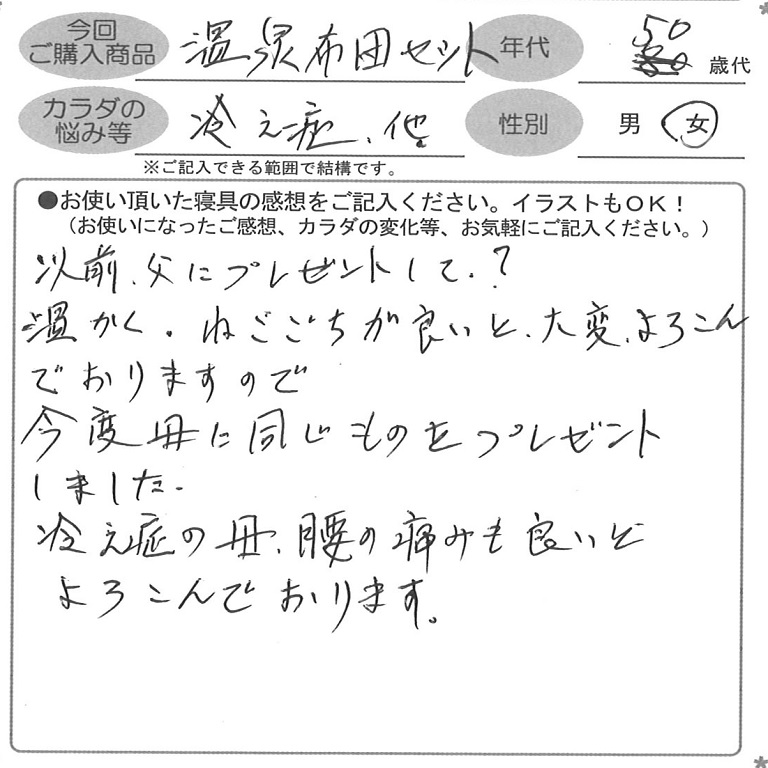 今回
ご購入商品
温泉布団セット
年代
50
歳代
カラダの
悩み等
冷え症、他
性別
男 女
※ご記入できる範囲で結構です。
●お使い頂いた寝具の感想をご記入ください。イラストもOK！
（お使いになったご感想、カラダの変化等、お気軽にご記入ください。）
以前、父にプレゼントして、?
温かく。ねごごちが良いと、大変、よろこん
でおりますので
今度母に同じものをプレゼント
しました。
冷え症の母、腰の痛みも良いと
よろこんでおります。